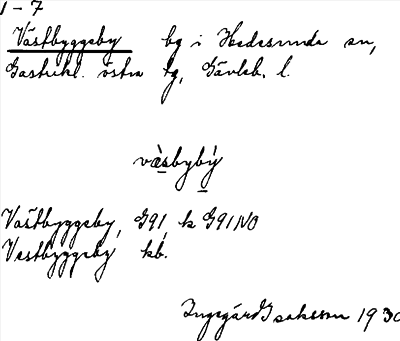 1-7
Västbyggeby by i Hedesunda sn,
Gästrikl. östra tg, Gävleb. l.
væ̀sbybý
Västbyggeby, G91, k G91NO
Vestbyggeby kb.
Ingegärd Isaksson 1930